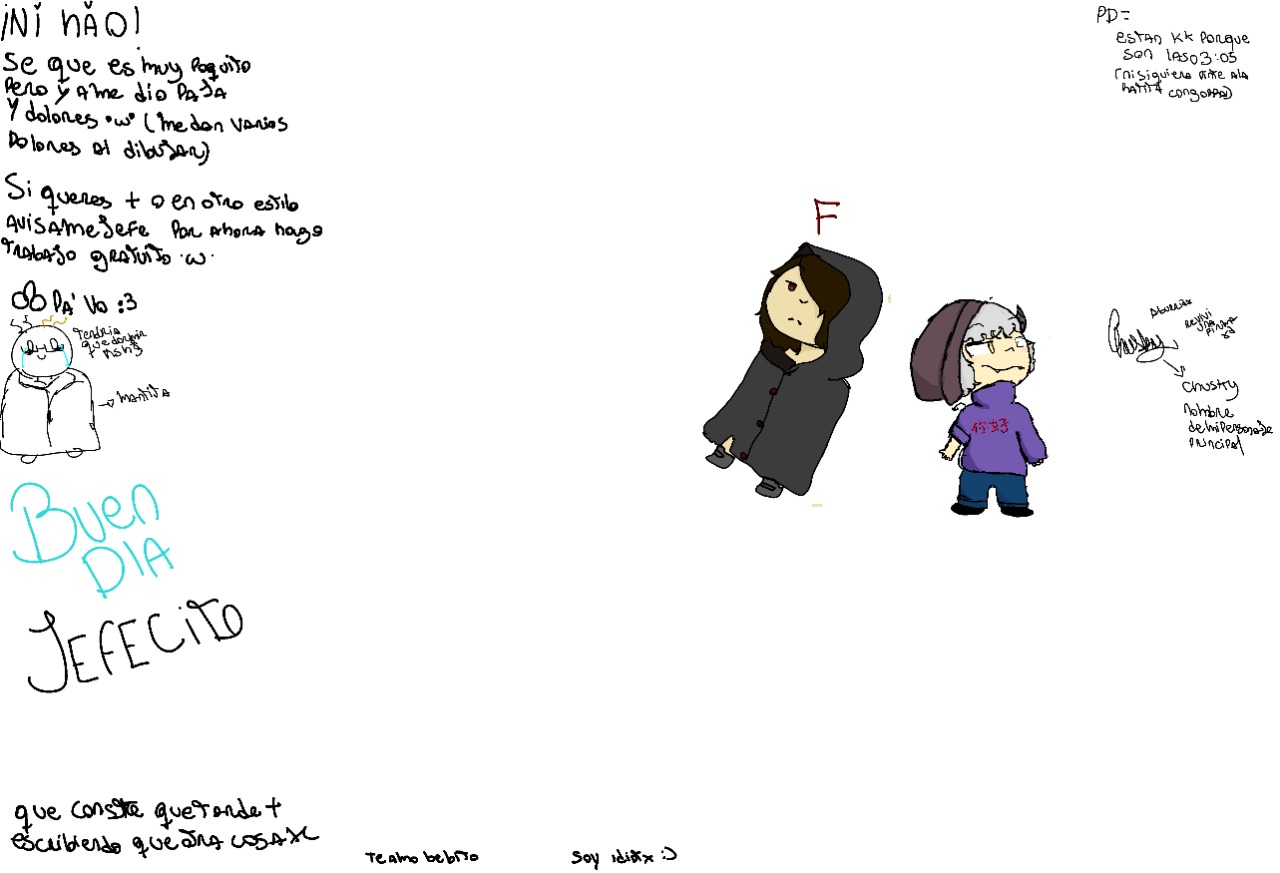 ¡Ni hăo!
Se que es muy poquito
pero ya me dio paja
y dolores •w• (me dan varios
dolores al dibujar)
Si queres + o en otro estilo
avisame jefe por ahora hago
trabajo gratuito •w•
Pa' Vo :3
Tendria
que dormir
+ nshj
→ mantita
Buen
Dia
Jefecito
que conste que tarde +
escribiendo que otra cosa
te amo bebito
Soy idiotx :)
F
你好
PD=
estan kk porque
son las 03:05
(ni siquiera vite a la
con gorra)
Chustry
Aburrida
Chustry
Nombre
de mi personaje
principal